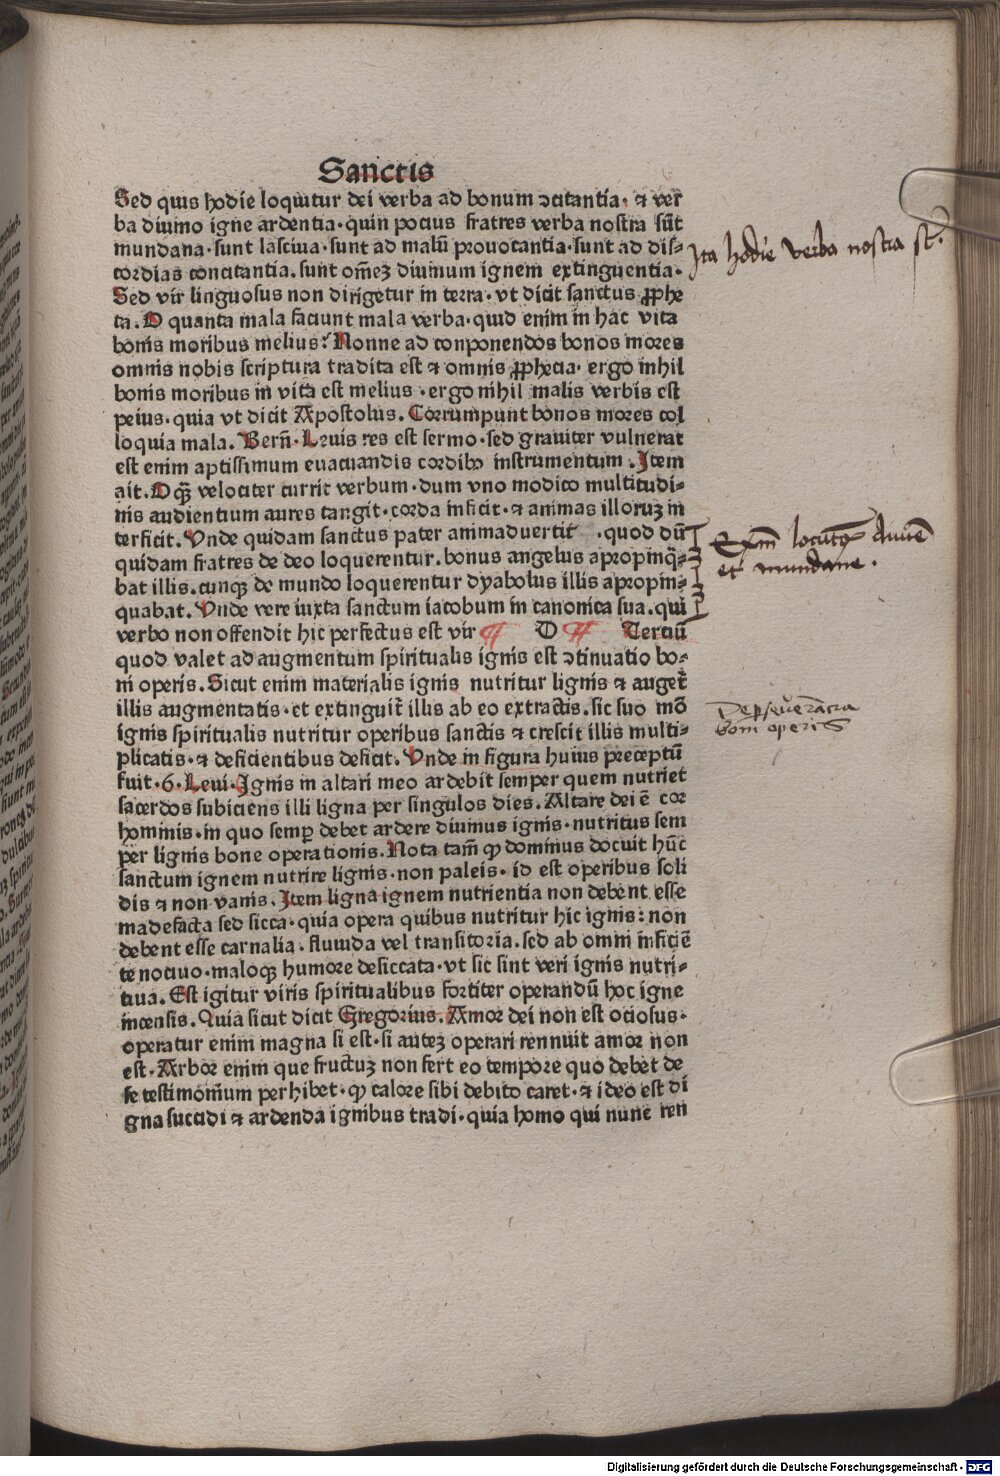 Sanctis
Sed quis hodie loquitur dei verba ad bonum ↄcitantia. ⁊ ver
ba diuino igne ardentia·quin pocius fratres verba nostra sūt
mundana·sunt lasciua·sunt ad malū prouocantia·sunt ad dis⸗
cordias concitantia. sunt om̄eꝫ diuinum ignem extinguentia·
Sed vir linguosus non dirigetur in terra·vt dicit sanctus ꝓphe
ta.O quanta mala faciunt mala verba·quid enim in hac vita
bonis moribus melius? Nonne ad conponendos bonos mores
omnis nobis scriptura tradita est ⁊ omnis ꝓphecia· ergo nihil
bonis moribus in vita est melius·ergo nihil malis verbis est
peius·quia vt dicit Apostolus. Corrumpunt bonos mores col
loquia mala. Bern̄·Leuis res est sermo·sed grauiter vulnerat
est enim aptissimum euacuandis cordibꝰ instrumentum.Item
ait.O qꝫ̄ velociter currit verbum·dum vno modico multitudi⸗
nis audientium aures tangit·corda inficit·⁊ animas illoruꝫ in
terficit. Vnde quidam sanctus pater animaduertit .quod dū
quidam fratres de deo loquerentur. bonus angelus apropinq̄⸗
bat illis.cunqꝫ de mundo loquerentur dyabolus illis apropin⸗
quabat. Vnde vere iuxta sanctum iacobum in canonica sua.qui
verbo non offendit hic perfectus est vir ¶ D ¶ Terciū
quod valet ad augmentum spiritualis ignis est ↄtinuatio bo⸗
ni operis. Sicut enim materialis ignis nutritur lignis ⁊ auget̄
illis augmentatis·et extinguit̄ illis ab eo extractis.sic suo mō
ignis spiritualis nutritur operibus sanctis ⁊ crescit illis multi⸗
plicatis·⁊ deficientibus deficit. Vnde in figura huius preceptū
fuit·6·Leui·Ignis in altari meo ardebit semper quem nutriet
sacerdos subiciens illi ligna per singulos dies.Altare dei ē cor
hominis·in quo semꝑ debet ardere diuinus ignis·nutritus sem
per lignis bone operationis.Nota tam̄ ꝙ dominus docuit hūc
sanctum ignem nutrire lignis·non paleis·id est operibus soli
dis ⁊ non vanis. Item ligna ignem nutrientia non debent esse
madefacta sed sicca·quia opera quibus nutritur hic ignis: non
debent esse carnalia·fluuida vel transitoria.sed ab omni inficiē
te nociuo·maloqꝫ humore desiccata·vt sic sint veri ignis nutri⸗
tiua. Est igitur viris spiritualibus fortiter operandū hoc igne
incensis. Quia sicut dicit Gregorius. Amor dei non est ociosus·
operatur enim magna si est·si auteꝫ operari rennuit amor non
est·Arbor enim que fructuꝫ non fert eo tempore quo debet de
se testimonium perhibet·ꝙ calore sibi debito caret·⁊ ideo est di
gna succidi ⁊ ardenda ignibus tradi·quia homo qui nunc ren
Ita hodie verba nostra st̄.
Exm̄ locutoꝝ diuine
et mundane.
Perseuerācia
boni operis
Digitalisierung gefördert durch die Deutsche Forschungsgemeinschaft · DFG